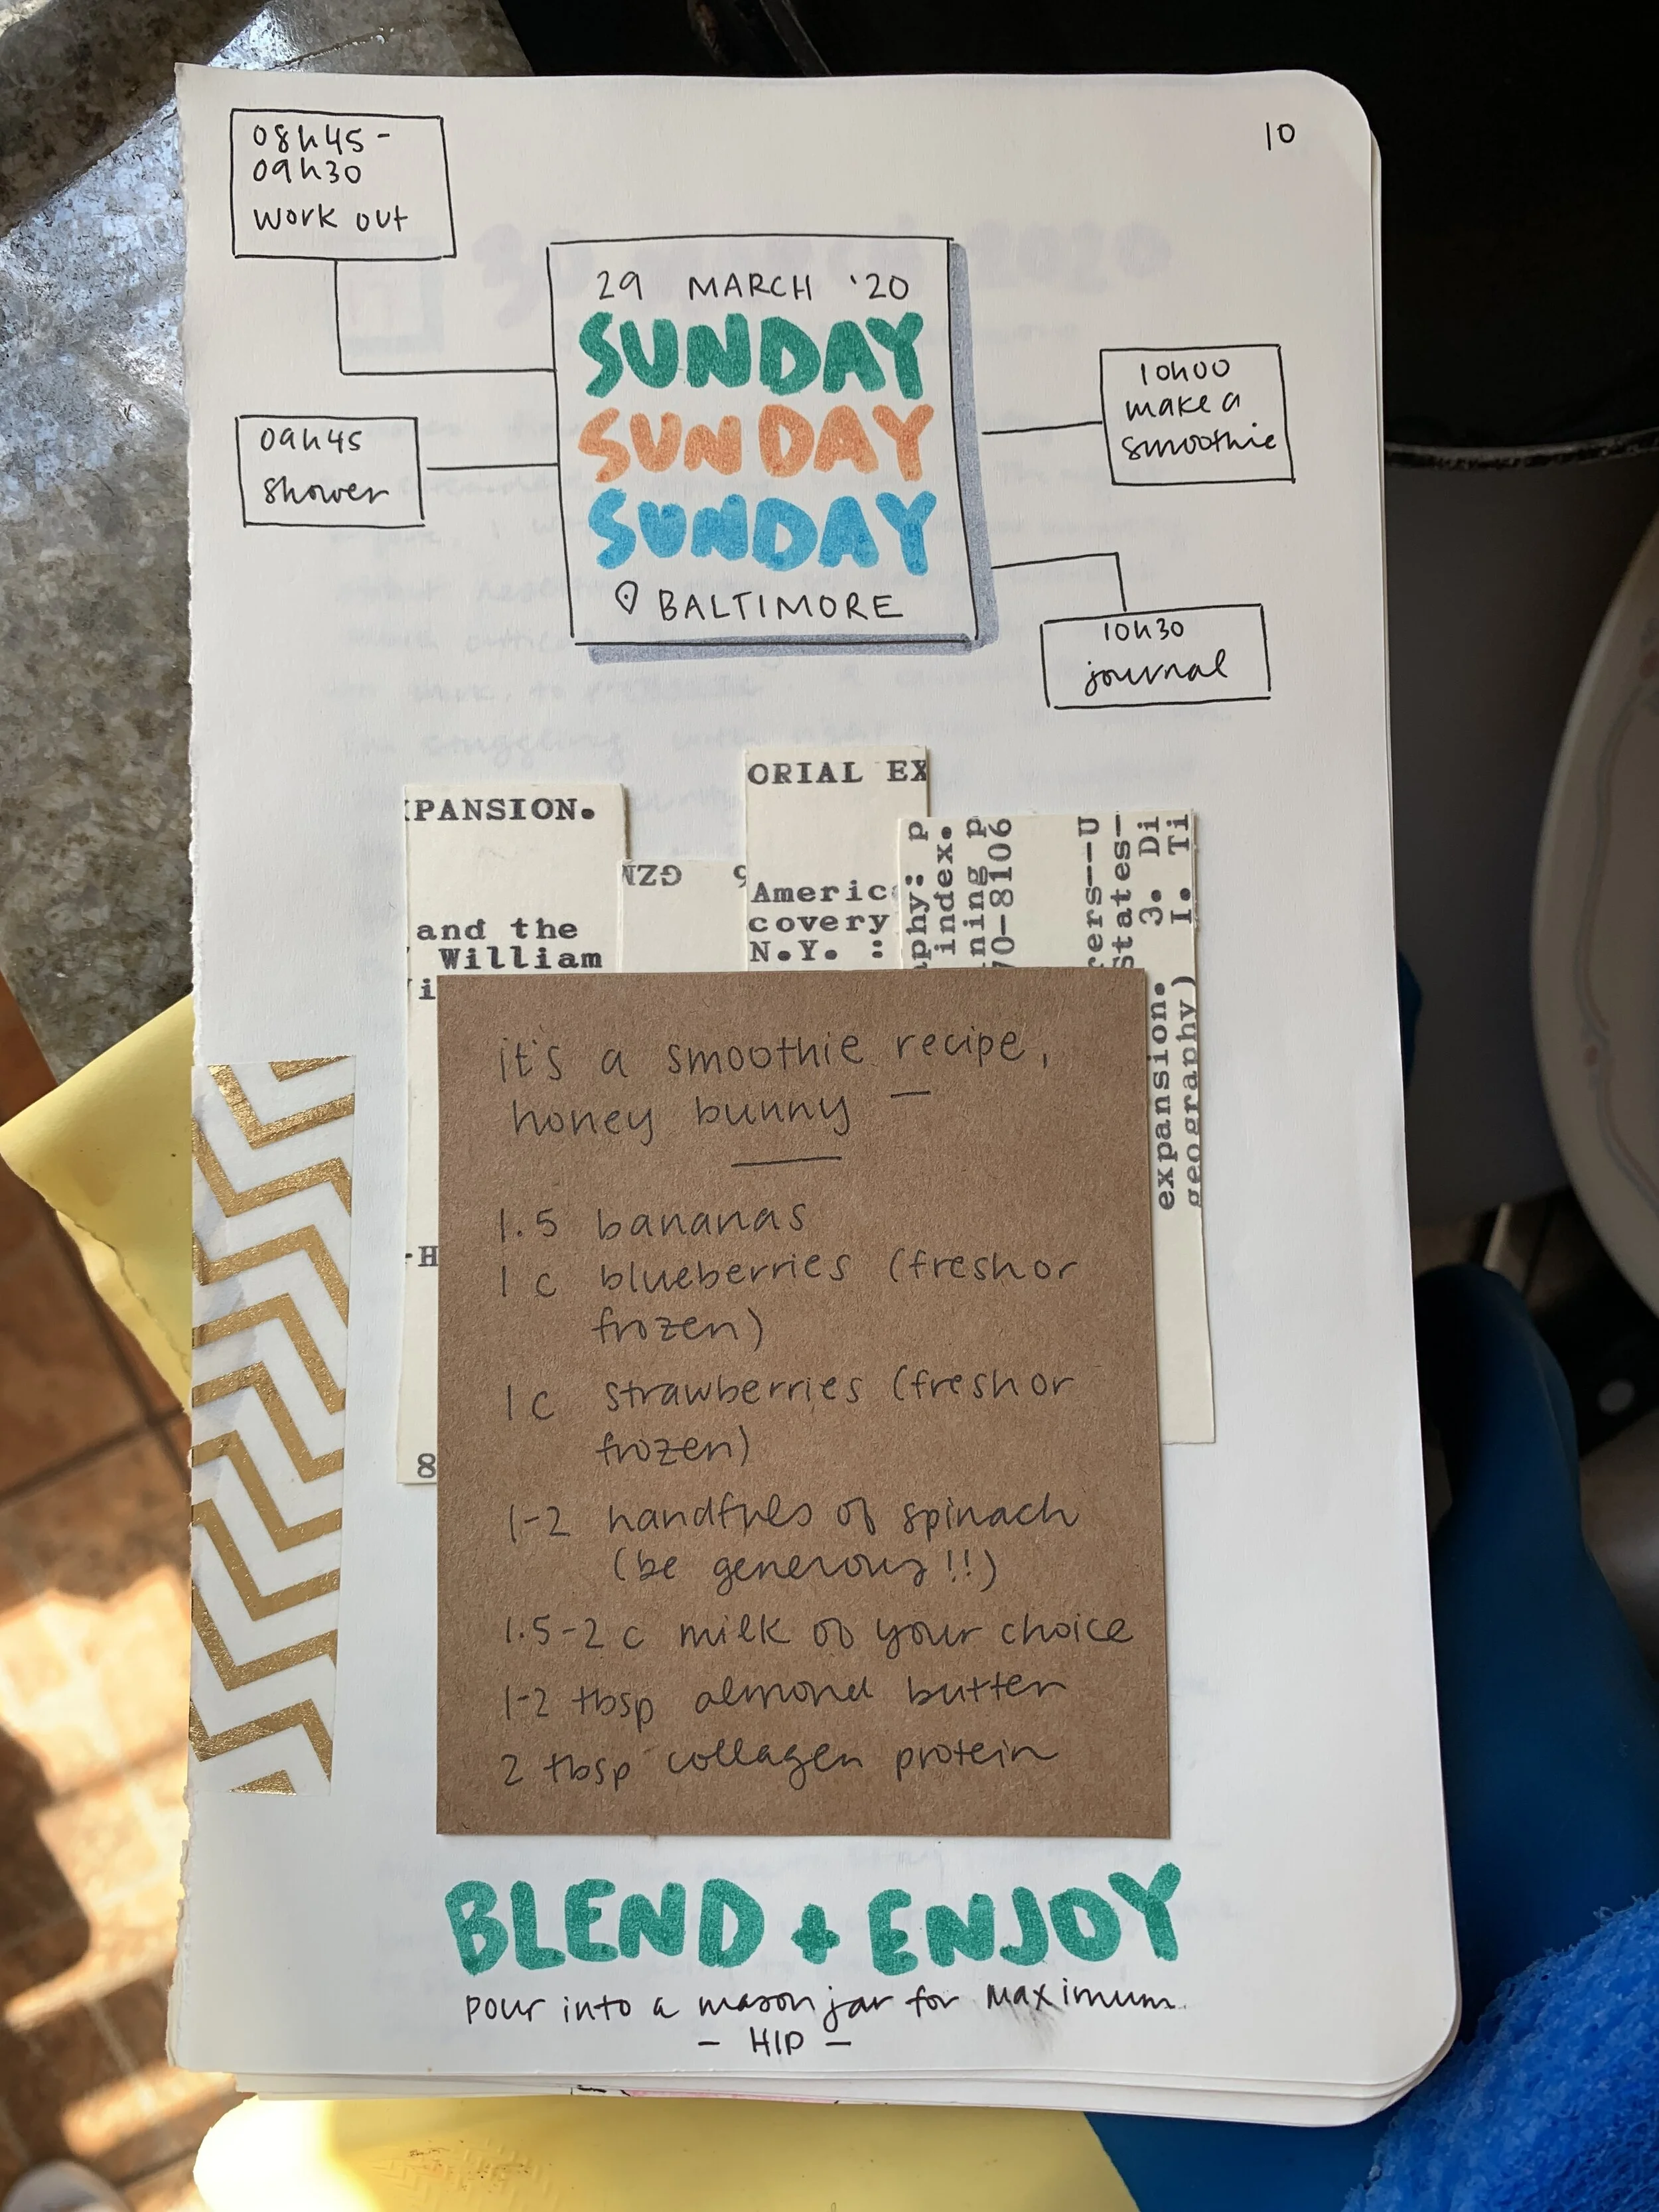 10
08h45-
09h30
work out
09h45
shower
29 MARCH '20
SUNDAY
SUNDAY
SUNDAY
BALTIMORE
10h00
make a
smoothie
10h30
journal
PANSION.
and the
William
ORIAL EX
Americ
covery
N.Y. :
phy: p
index.
ning p
70-8106
ers--U
States-
3. Di
I. Ti
expansion.
geography)
-H
8
it's a smoothie recipe,
honey bunny —
1.5 bananas
1 c blueberries (fresh or
frozen)
1 c strawberries (fresh or
frozen)
1-2 handfuls of spinach
(be generous!!)
1.5-2 c milk of your choice
1-2 tbsp almond butter
2 tbsp collagen protein
BLEND + ENJOY
pour into a mason jar for maximum
- HIP -